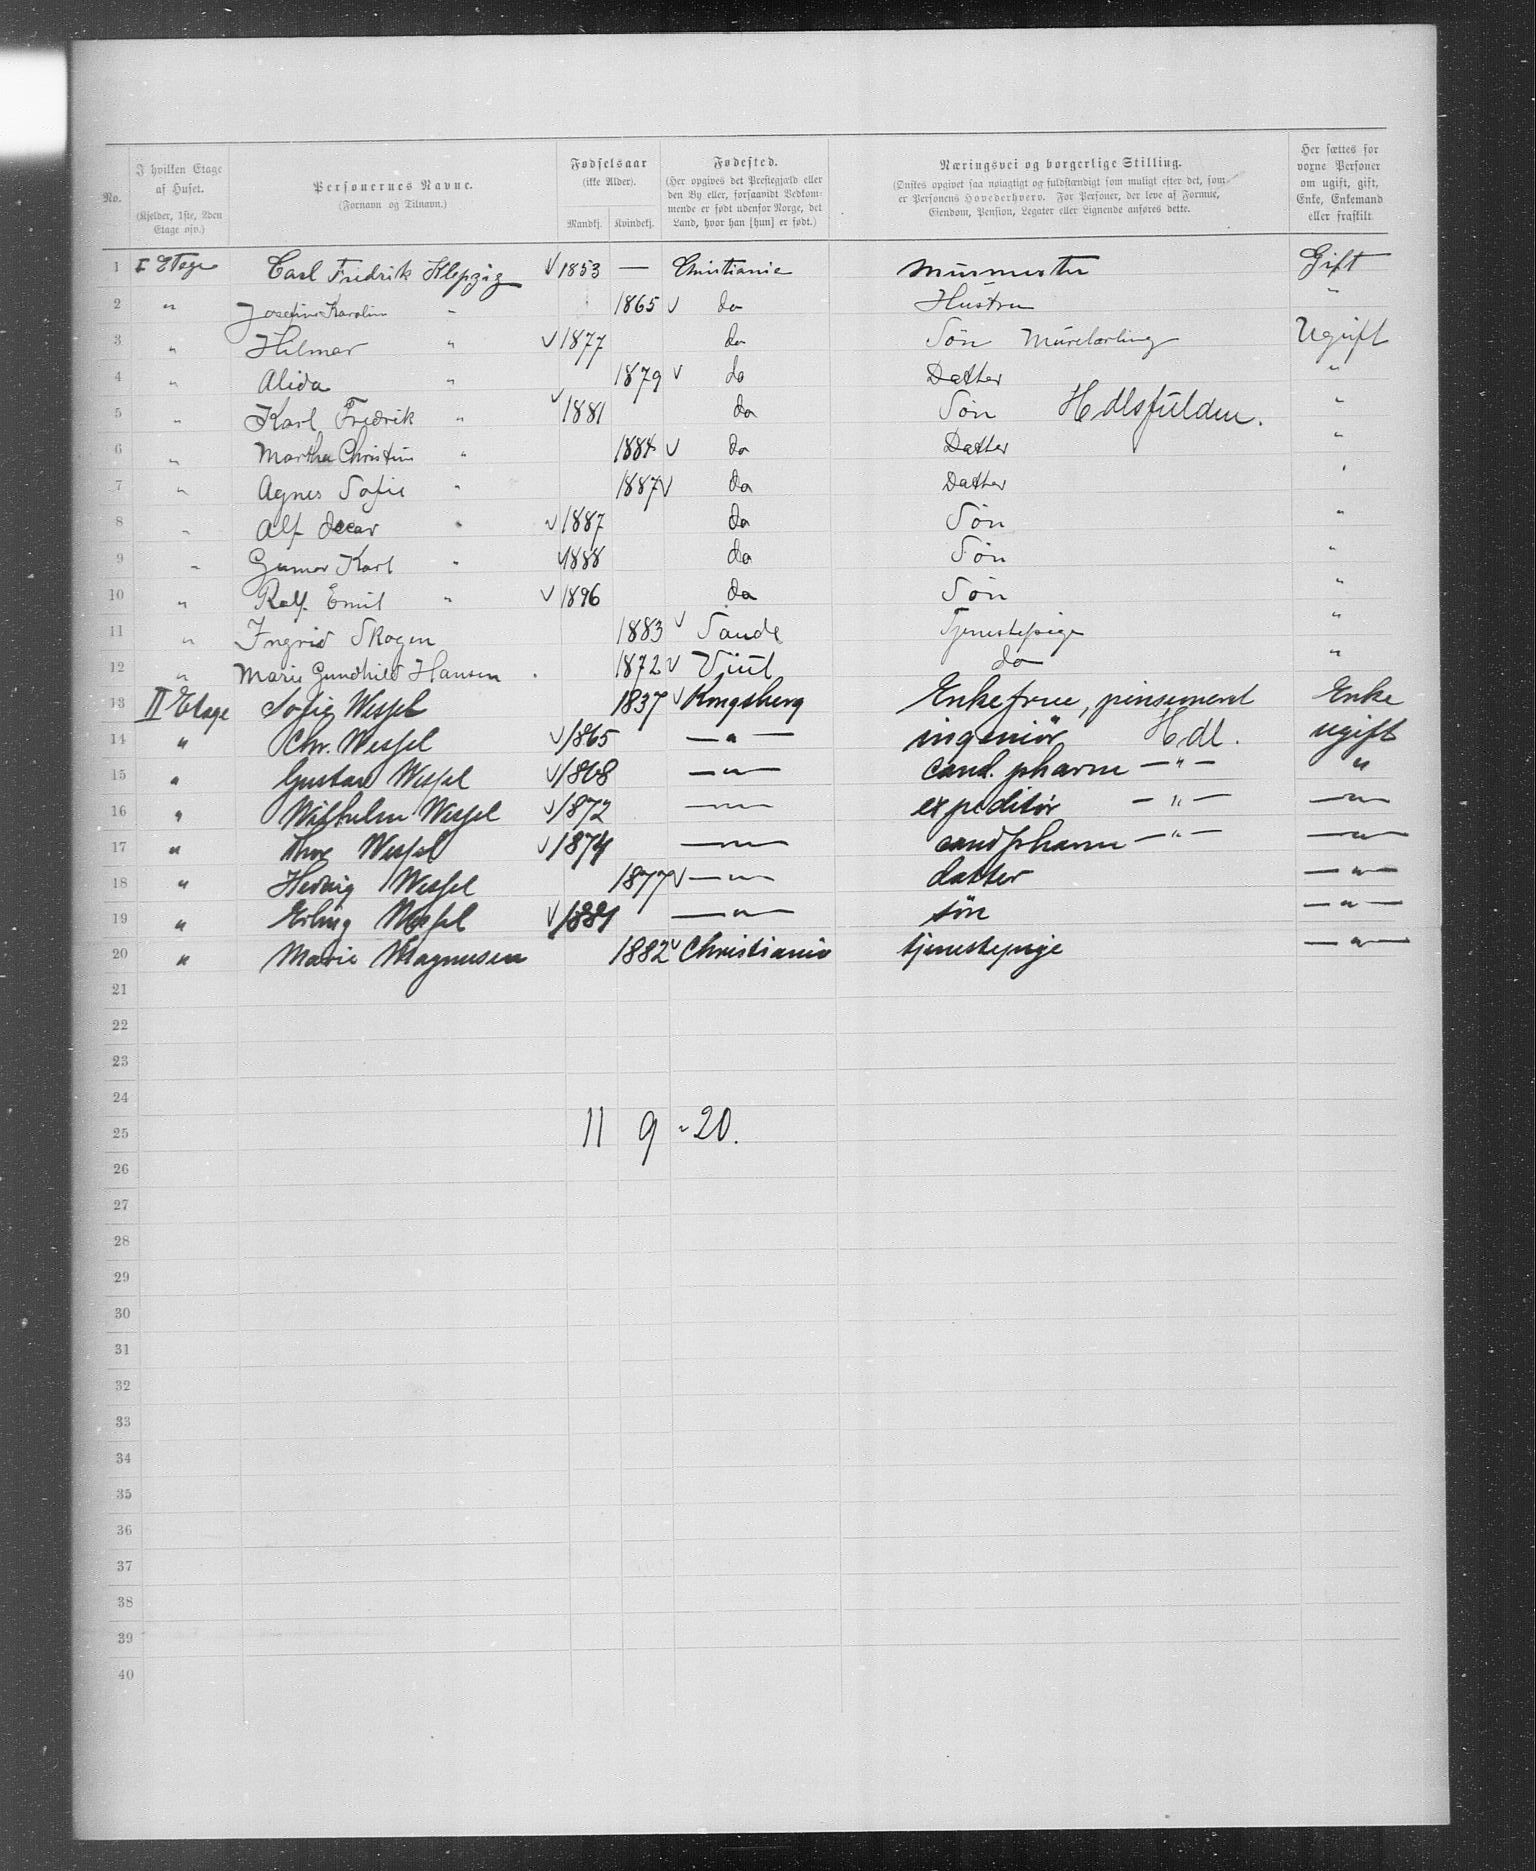 No.
I hvilken Etage af Huset. (Kjelder, 1ste, 2den Etage osv.)
Personernes Navne. (Fornavn og Tilnavn.)
Fødselsaar (ikke Alder). Mandkj. Kvindekj.
Fødested. (Her opgives det Prestegjæld eller den By eller, forsaavidt Vedkommende er født udenfor Norge, det Land, hvor han [hun] er født.)
Næringsvei og borgerlige Stilling. (Ønskes opgivet saa nøiagtigt og fuldstændigt som muligt efter det, som er Personens Hovederhverv. For Personer, der leve af Formue, Eiendom, Pension, Legater eller Lignende anføres dette.
Her sættes for voxne Personer om ugift, gift, Enke, Enkemand eller fraskilt
1 I Etage Carl Fredrik Klepzig √ 1853 — Christiania Murmester Gift
2 " Josefine Karoline " 1865 √ do Hustru "
3 " Hilmar " √ 1877 do Søn Murelærling Ugift
4 " Alida " 1879 √ do Datter "
5 " Karl Fredrik " √ 1881 do Søn Hdlsfuldm. "
6 " Martha Christine " 1884 √ do Datter "
7 " Agnes Sofie " 1887 √ do Datter "
8 " Alf Oscar " √ 1887 do Søn "
9 " Gunar Karl " √ 1888 do Søn "
10 " Rolf Emil " √ 1896 do Søn "
11 " Ingrid Skogen 1883 √ Sande Tjenestepige "
12 " Marie Gundhild Hansen 1872 √ do "
13 II Etage Sofie Wessel 1837 √ Kongsberg Enkefrue, pensioneret Enke
14 " Chr. Wessel √ 1865 — " — ingeniør Hdl. ugift
15 " Gustav Wessel √ 1868 — " — cand. pharm — " — "
16 " Wilhelm Wessel √ 1872 — " — expeditør — " — — " —
17 " Thor Wessel √ 1874 — " — cand pharm — " — — " —
18 " Hedvig Wessel 1877 √ — " — datter — " —
19 " Erling Wessel √ 1881 — " — søn — " —
20 " Marie Magnusen 1882 √ Christiania tjenestepige — " —
21
22
23
24
25 11 9 - 20.
26
27
28
29
30
31
32
33
34
35
36
37
38
39
40